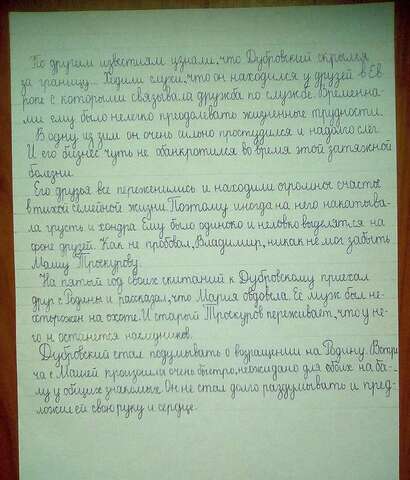 По другим известиям узнали, что Дубровский скрылся
за границу... Ходили слухи, что он находился у друзей в Ев
ропе с которыми связывала дружба по службе. Временна-
ми ему было нелегко преодалевать жизненные трудности.
В одну из зим он очень сильно простудился и надолго слег.
И его бизнес чуть не обанкротился во время этой затяжной
болезни.
Его друзья все переженились и находили огромное счастье
в тихой семейной жизни. Поэтому иногда на него накатыва-
ла грусть и хондра. Ему было одиноко и неловко выделятся на
фоне друзей. Как не пробовал, Владимир, никак не мог забыть
Машу Троекурову.
На пятый год своих скитаний к Дубровскому приехал
друг с Родины и рассказал, что Мария овдовела. Её муж был не-
осторожен на охоте. И старый Троекуров переживает, что у не-
го н останется наследников.
Дубровский стал подумывать о возращении на Родину. Встре
ча с Машей произошла очень быстро, неожидано для обоих на ба-
лу у общих знакомых. Он не стал долго раздумывать и пред-
ложил ей свою руку и сердце.